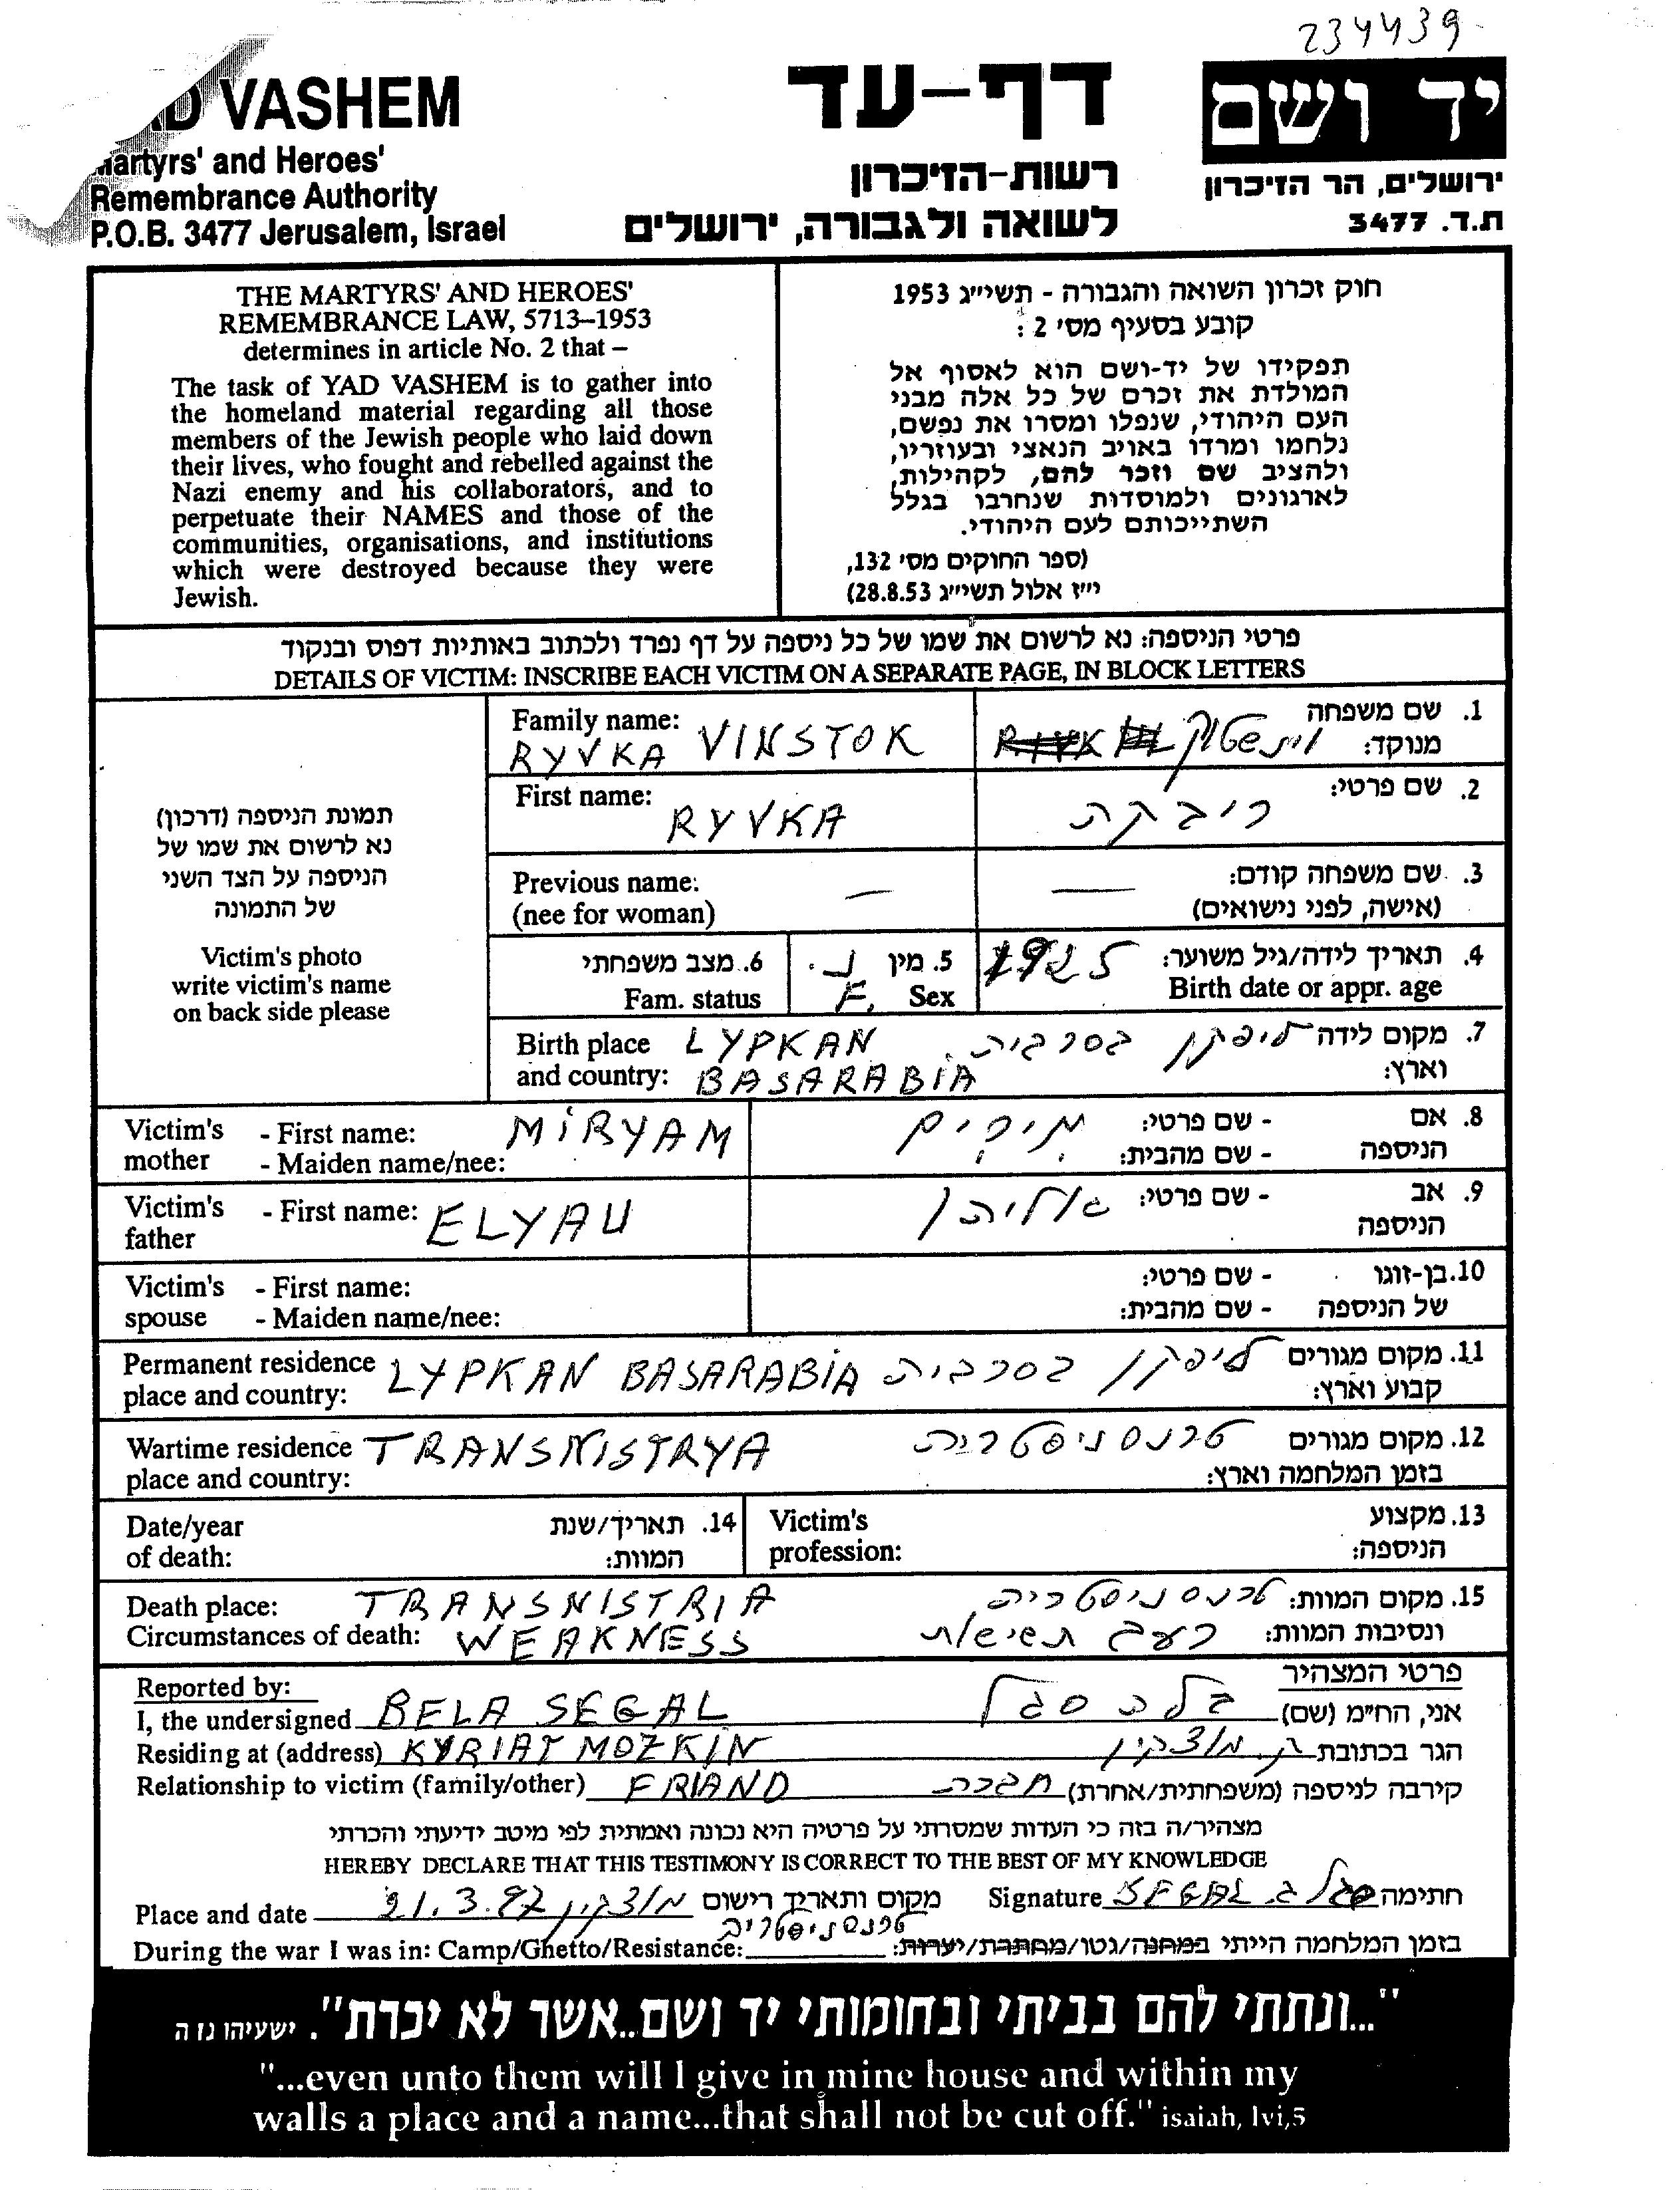 234439
YAD VASHEM
Martyrs' and Heroes'
Remembrance Authority
P.O.B. 3477 Jerusalem, Israel
דף-עד
רשות-הזיכרון
לשואה ולגבורה, ירושלים
יד ושם
ירושלים, הר הזיכרון
ת.ד. 3477
THE MARTYRS' AND HEROES'
REMEMBRANCE LAW, 5713–1953
determines in article No. 2 that –
The task of YAD VASHEM is to gather into
the homeland material regarding all those
members of the Jewish people who laid down
their lives, who fought and rebelled against the
Nazi enemy and his collaborators, and to
perpetuate their NAMES and those of the
communities, organisations, and institutions
which were destroyed because they were
Jewish.
חוק זכרון השואה והגבורה - תשי״ג 1953
קובע בסעיף מס׳ 2 :
תפקידו של יד-ושם הוא לאסוף אל
המולדת את זכרם של כל אלה מבני
העם היהודי, שנפלו ומסרו את נפשם,
נלחמו ומרדו באויב הנאצי ובעוזריו,
ולהציב שם וזכר להם, לקהילות,
לארגונים ולמוסדות שנחרבו בגלל
השתייכותם לעם היהודי.
(ספר החוקים מס׳ 132,
י״ז אלול תשי״ג 28.8.53)
פרטי הניספה: נא לרשום את שמו של כל ניספה על דף נפרד ולכתוב באותיות דפוס ובנקוד
DETAILS OF VICTIM: INSCRIBE EACH VICTIM ON A SEPARATE PAGE, IN BLOCK LETTERS
תמונת הניספה (דרכון)
נא לרשום את שמו של
הניספה על הצד השני
של התמונה
Victim's photo
write victim's name
on back side please
Family name: VINSTOK
RYVKA
1. שם משפחה
מנוקד: וינשטוק
First name: RYVKA
2. שם פרטי: ריבקה
Previous name: —
(nee for woman)
3. שם משפחה קודם: —
(אישה, לפני נישואים)
6. מצב משפחתי
Fam. status
5. מין נ.
F. Sex
4. תאריך לידה/גיל משוער: 1925
Birth date or appr. age
Birth place LYPKAN
and country: BASARABIA
7. מקום לידה ליפקן בסרביה
וארץ:
Victim's mother - First name: MIRYAM
- Maiden name/nee:
8. אם הניספה - שם פרטי: מירים
- שם מהבית:
Victim's father - First name: ELYAU
9. אב הניספה - שם פרטי: אליהו
Victim's spouse - First name:
- Maiden name/nee:
10. בן-זוגו של הניספה - שם פרטי:
- שם מהבית:
Permanent residence place and country: LYPKAN BASARABIA
11. מקום מגורים קבוע וארץ: ליפקן בסרביה
Wartime residence place and country: TRANSNISTRYA
12. מקום מגורים בזמן המלחמה וארץ: טרנסניסטריה
Date/year of death:
14. תאריך/שנת המוות:
Victim's profession:
13. מקצוע הניספה:
Death place: TRANSNISTRIA
Circumstances of death: WEAKNESS
15. מקום המוות: טרנסניסטריה
ונסיבות המוות: רעב תשישות
Reported by:
פרטי המצהיר
I, the undersigned BELA SEGAL
אני, הח״מ (שם) בלה סגל
Residing at (address) KYRIAT MOZKIN
הגר בכתובת ק. מוצקין
Relationship to victim (family/other) FRIAND
קירבה לניספה (משפחתית/אחרת) חברה
מצהיר/ה בזה כי העדות שמסרתי על פרטיה היא נכונה ואמתית לפי מיטב ידיעתי והכרתי
HEREBY DECLARE THAT THIS TESTIMONY IS CORRECT TO THE BEST OF MY KNOWLEDGE
Place and date 21.3.92 מוצקין מקום ותאריך רישום
Signature SEGAL סגל ב חתימה
טרנסניסטריה
During the war I was in: Camp/Ghetto/Resistance:
בזמן המלחמה הייתי במחנה/גטו/מחתרת/יערות:
"...ונתתי להם בביתי ובחומותי יד ושם..אשר לא יכרת". ישעיהו נז ה
"...even unto them will I give in mine house and within my
walls a place and a name...that shall not be cut off." isaiah, lvi,5